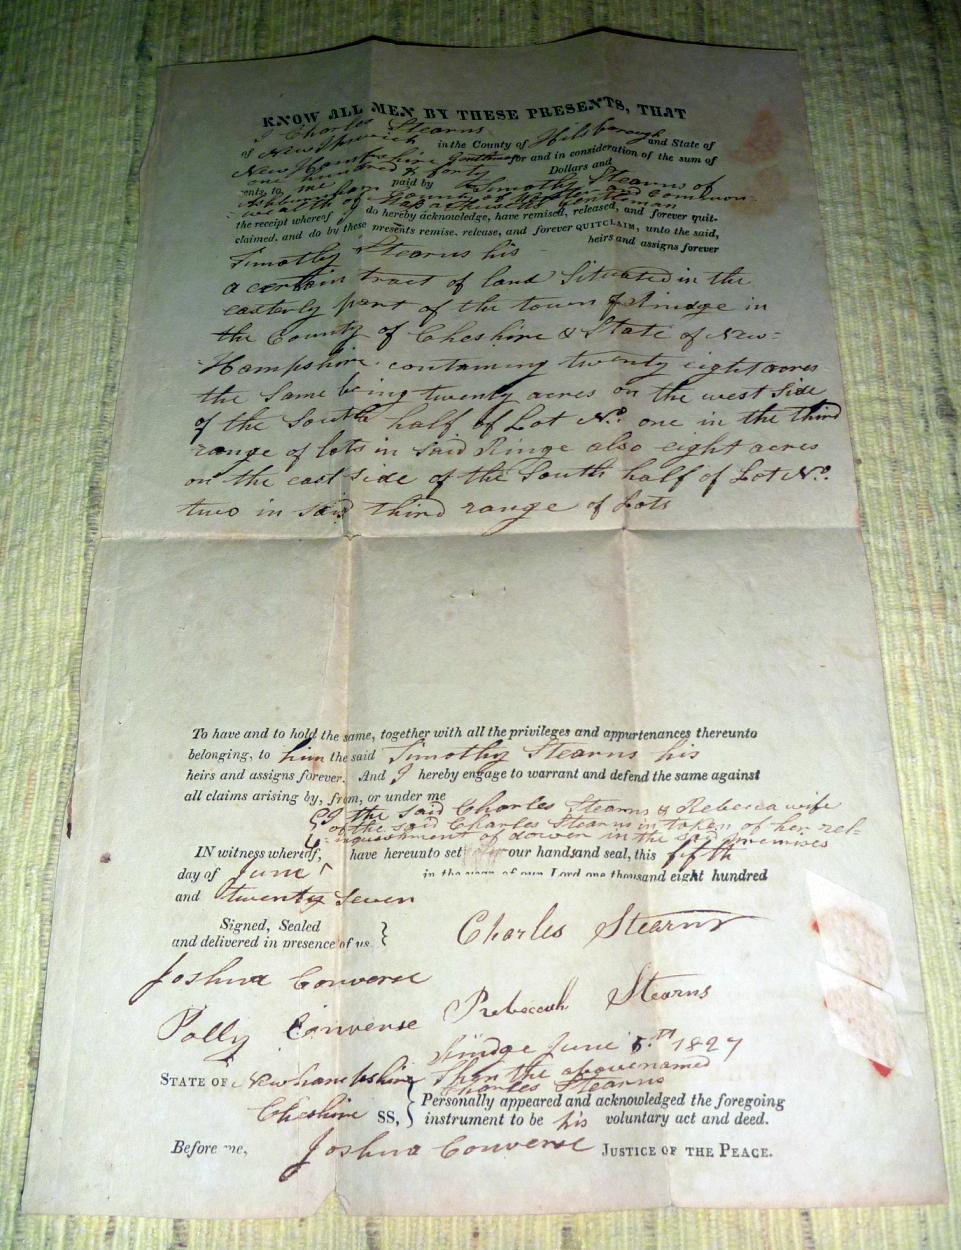 KNOW ALL MEN BY THESE PRESENTS, THAT
I Charles Stearns
of New Ipswich in the County of Hilsborough and State of
New Hampshire Gentleman for and in consideration of the sum of
one hundred & forty Dollars and
cents, to me paid by Timothy Stearns of
Ashburnham County of and Common-
wealth of Massachusetts Gentleman
the receipt whereof I do hereby acknowledge, have remised, released, and forever quit-
claimed, and do by these presents remise, release, and forever QUITCLAIM, unto the said,
Timothy Stearns his heirs and assigns forever
a certain tract of land Situated in the
easterly part of the town of Rindge in
the County of Cheshire & State of New-
Hampshire containing twenty eight acres
the Same being twenty acres on the west Side
of the South half of Lot No. one in the third
range of lots in Said Ringe also eight acres
on the east Side of the South half of Lot No.
two in said third range of Lots
To have and to hold the same, together with all the privileges and appurtenances thereunto
belonging, to him the said Timothy Stearns his
heirs and assigns forever. And I hereby engage to warrant and defend the same against
all claims arising by, from, or under me
I the said Charles Stearns & Rebecca wife
of the said Charles Stearns in token of her rel-
inquishment of dower in the said premises
IN witness whereof, have hereunto set our hands and seal, this fifth
day of June in the year of our Lord one thousand eight hundred
and twenty Seven
Signed, Sealed
and delivered in presence of us. }
Charles Stearns
Joshua Converse
Rebeccah Stearns
Polly Converse
Rindge June 5th 1827
STATE OF New hampshire Then the abovenamed
Charles Stearns
Personally appeared and acknowledged the foregoing
Cheshire SS, { instrument to be his voluntary act and deed.
Before me, Joshua Converse JUSTICE OF THE PEACE.